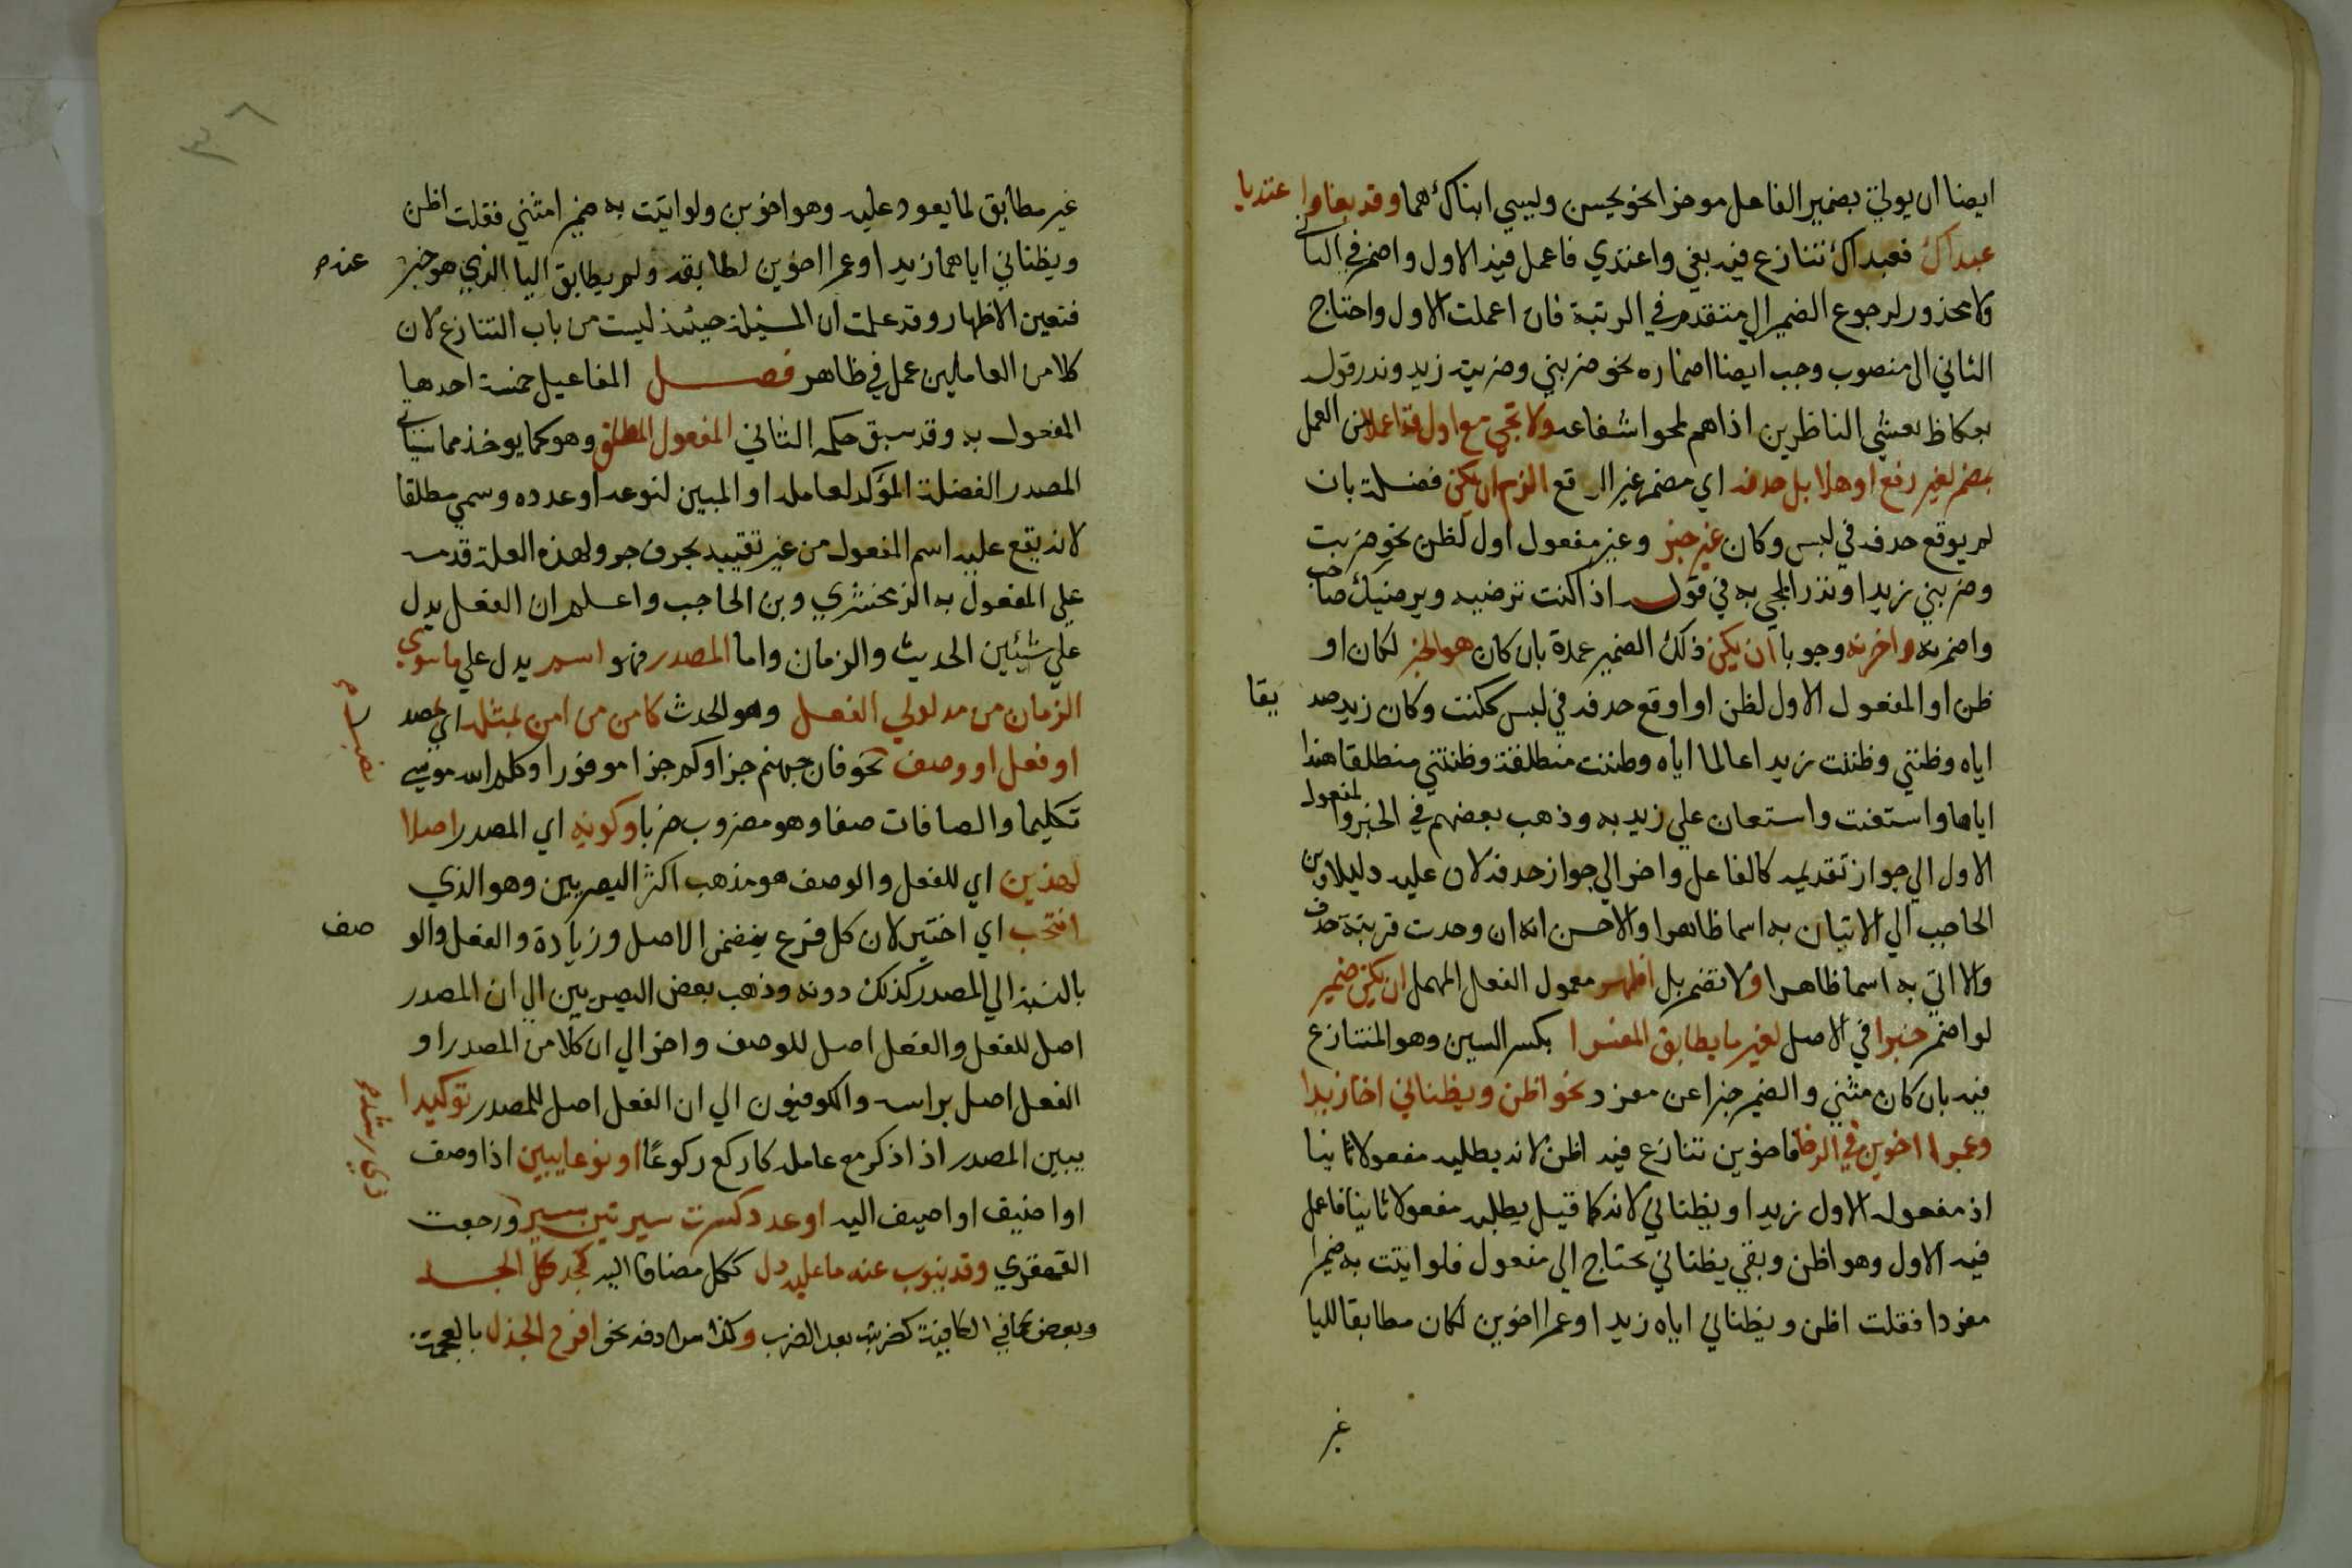 ايضا ان يولي بضمير الفاعل موخرا نحو يحسن ويسي ابناك هما وقد بغيا واعتديا
عبداك فعبداك تنازع فيه بغي واعتدي فاعمل فيه الاول واضمر في الثاني
ولا محذور لرجوع الضمير الي متقدم في الرتبة فان اعملت الاول واحتاج
الثاني الي منصوب وجب ايضا اضماره نحو ضربني وضربته زيد وندر قوله
بعكاظ يعشي الناظرين اذا هم لمحوا شعاعه ولا تجي مع اول قد اهملا من العمل
بمضمر لغير رفع اوهلا بل حذفه اي مضمر غير الرفع الزم ان يكن فضلة بان
لم يوقع حذفه في لبس وكان غير خبر وغير مفعول اول لظن نحو ضربت
وضربني زيد او ندر المجي به في قوله اذا كنت ترضيه ويرضيك صاحب
واضمرنه واخرنه وجوبا ان يكن ذلك الضمير عمدة بان كان هو الخبر لكان او
ظن او المفعول الاول لظن او اوقع حذفه في لبس ككنت وكان زيد صديقا
اياه وظنني وظننت زيدا عالما اياه وظننت منطلقة وظنتني منطلقا هندا
اياها واستعنت واستعان علي زيد به وذهب بعضهم في الخبر والمفعول
الاول الي جواز تقديمه كالفاعل واخر الي جواز حذفه لان عليه دليلا وابن
الحاجب الي الاتيان به اسما ظاهرا والاحسن انه ان وجدت قرينة حذف
والا اتي به اسما ظاهرا ولا تضمر بل اظهر معمول الفعل المهمل ان يكن ضمير
لو اضمر خبرا في الاصل لغير ما يطابق المفسرا بكسر السين وهو المتنازع
فيه بان كان مثني والضمير خبرا عن مفرد نحو اظن ويظناني اخا زيدا
وعمرا اخوين في الرخا فاخوين تنازع فيه اظن لانه يطلبه مفعولا ثانيا
اذ مفعوله الاول زيدا ويظناني لانه كما قيل يطلبه مفعولا ثانيا فاعمل
فيه الاول وهو اظن وبقي يظناني يحتاج الي مفعول فلو اتيت به ضميرا
مفردا فقلت اظن ويظناني اياه زيدا وعمرا اخوين لكان مطابقا لليا
غير
٣٦
غير مطابق لما يعود عليه وهو اخوين ولو اتيت به ضميرا مثني فقلت اظن
ويظناني اياهما زيدا وعمرا اخوين لطابقه ولم يطابق اليا الذي هو خبر عنه
فتعين الاظهار وقد علمت ان المسئلة حينئذ ليست من باب التنازع لان
كلا من العاملين عمل في ظاهر فصل المفاعيل خمسة احدها
المفعول به وقد سبق حكمه الثاني المفعول المطلق وهو كما يوخذ مما سياتي
المصدر الفضلة المؤكد لعامله او المبين لنوعه او عدده وسمي مطلقا
لانه يقع عليه اسم المفعول من غير تقييد بحرف جر ولهذه العلة قدمه
علي المفعول به الزمخشري وبن الحاجب واعلم ان الفعل يدل
علي شيئين الحدث والزمان واما المصدر فهو اسم يدل علي ما سوي
الزمان من مدلولي الفعل وهو الحدث كامن من امن بمثله اي بمصدر
او فعل او وصف نصب نحو فان جهنم جزاوكم جزا موفورا وكلم الله موسي
تكليما والصافات صفا وهو مضروب ضربا وكونه اي المصدر اصلا
لهذين اي للفعل والوصف هو مذهب اكثر البصريين وهو الذي
انتخب اي اختير لان كل فرع يتضمن الاصل وزيادة والفعل والوصف
بالنسبة الي المصدر كذلك دونه وذهب بعض البصريين الي ان المصدر
اصل للفعل والفعل اصل للوصف واخر الي ان كلا من المصدر او
الفعل اصل براسه والكوفيون الي ان الفعل اصل للمصدر توكيدا
يبين المصدر اذا ذكر مع عامله كاركع ركوعًا او نوعا يبين اذا وصف
او اضيف او اضيف اليه او عدد كسرت سيرتين سير ذي رشد ورجعت
القهقري وقد ينوب عنه ما عليه دل ككل مضافا اليه كجد كل الجد
وبعض كما في الكافية كضربته بعد الضرب وكذا مرادفه نحو افرح الجذل بالمعجمة